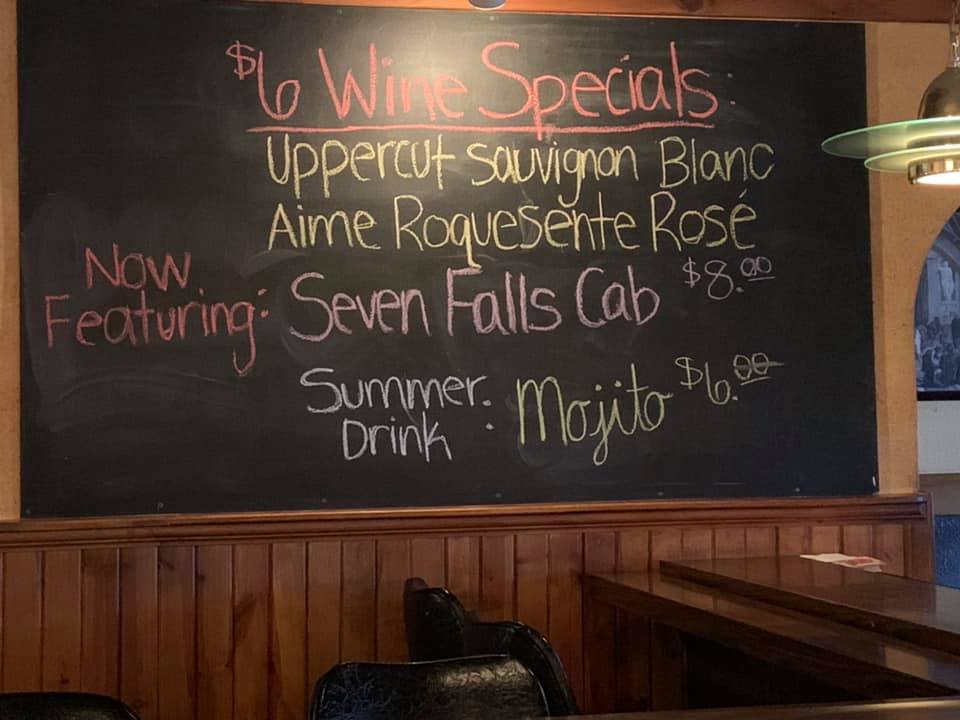 $6 Wine Specials:
Uppercut Sauvignon Blanc
Aime Roquesente Rosé
Now Featuring: Seven Falls Cab $8.00
Summer Drink: Mojito $6.00